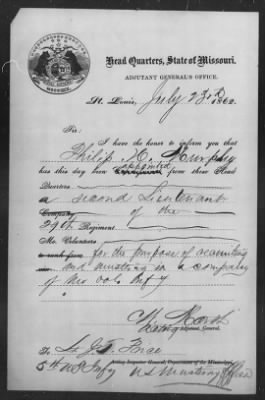 Head Quarters, State of Missouri.
ADJUTANT GENERAL'S OFFICE.
St. Louis, July 23d 1862.
Sir:
I have the honor to inform you that
Philip
has this day been appointed from these Head
Quarters
a second Lieutenant
Company of the
29th Regiment
Mo. Volunteers
for the purpose of recruiting
and mustering in a company
of Mo Vols Inf'y
Adjutant General.
To Lt. J.
Acting Inspector General, Department of the Mississippi
5th Inf'y U S Mustering Officer